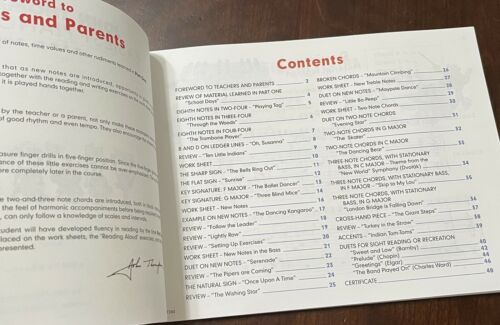 reword to
s and Parents
of notes, time values and other rudiments learned in
that as new notes are introduced,
together with the reading and writing exercises
it is played hands together.
by the teacher or a parent, not only make these
of good rhythm and even tempo. They also encourage
asure finger drills in five-finger position. Since the
ance of these little exercises cannot be over-emphasized
completely later in the course.
two-and-three note chords are introduced, both in
the feel of harmonic accompaniments before being
can only follow a knowledge of scales and intervals.
student will have developed fluency in reading by the
placed on the work sheets, the "Reading Aloud" exercises
Contents
FOREWORD TO TEACHERS AND PARENTS 2
REVIEW OF MATERIAL LEARNED IN PART ONE
"School Days" 4
EIGHTH NOTES IN TWO-FOUR - "Playing Tag" 5
EIGHTH NOTES IN THREE-FOUR
"Through the Woods" 6
EIGHTH NOTES IN FOUR-FOUR
"The Trombone Player" 7
B AND D ON LEDGER LINES - "Oh, Susanna"
REVIEW - "Ten Little Indians"
WORK SHEET
THE SHARP SIGN - "The Bells Ring Out"
THE FLAT SIGN - "Sunrise"
KEY SIGNATURE: F MAJOR - "The Ballet Dancer"
KEY SIGNATURE: G MAJOR - "Three Blind Mice"
WORK SHEET - New Notes
EXAMPLE ON NEW NOTES - "The Dancing Kangaroo"
REVIEW - "Follow the Leader"
REVIEW - "Lightly Row"
REVIEW - "Setting-Up Exercises"
WORK SHEET - New Notes in the Bass
DUET ON NEW NOTES - "Serenade"
REVIEW - "The Pipers are Coming"
THE NATURAL SIGN - "Once Upon A Time"
REVIEW - "The Wishing Star" 25
BROKEN CHORDS - "Mountain Climbing" 26
WORK SHEET - New Treble Notes 27
DUET ON NEW NOTES - "Maypole Dance" 28
REVIEW - "Little Bo-Peep" 30
WORK SHEET - Two-Note Chords
DUET ON TWO-NOTE CHORDS
"Evening Star"
TWO-NOTE CHORDS IN G MAJOR
"The Skater"
TWO-NOTE CHORDS IN C MAJOR
"The Dancing Bear"
THREE-NOTE CHORDS, WITH STATIONARY
BASS, IN C MAJOR - Theme from the
"New World" Symphony (Dvořák)
THREE-NOTE CHORDS, WITH STATIONARY BASS,
IN F MAJOR - "Skip to My Lou"
THREE-NOTE CHORDS, WITH STATIONARY
BASS, IN G MAJOR
"London Bridge is Falling Down"
CROSS-HAND PIECE - "The Giant Steps"
REVIEW - "Turkey in the Straw"
ACCENTS - "Indian Tom-Toms"
DUETS FOR SIGHT READING OR RECREATION
"Sweet and Low" (Barnby)
"Prelude" (Chopin)
"Greetings" (Elgar)
"The Band Played On" (Charles Ward)
CERTIFICATE 48